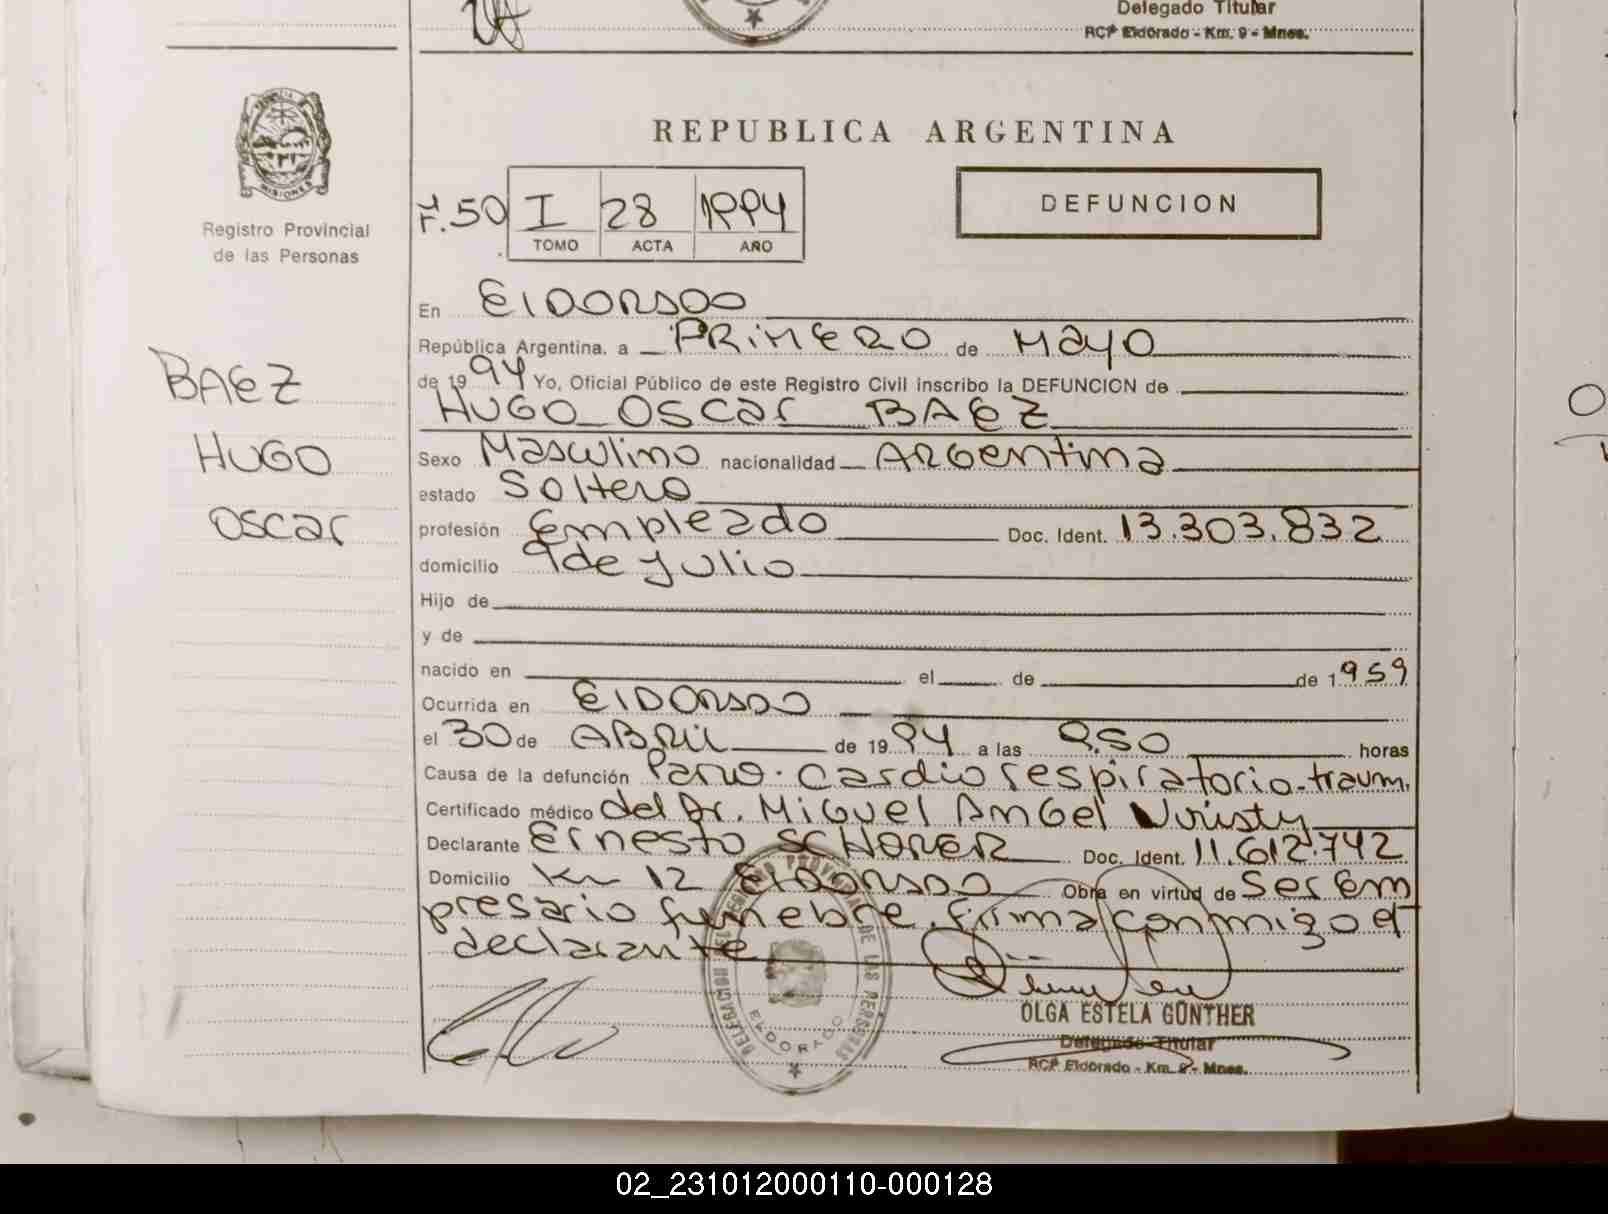 Delegado Titular
RCP Eldorado - Km. 9 - Mnes.
PROVINCIA DE
MISIONES
Registro Provincial
de las Personas
BAEZ
HUGO
OSCAR
REPUBLICA ARGENTINA
F.50 I 28 1994
TOMO ACTA AÑO
DEFUNCION
En ElDORADO
República Argentina, a PRIMERO de MAYO
de 1994 Yo, Oficial Público de este Registro Civil inscribo la DEFUNCION de
HUGO OSCAR BAEZ
Sexo Masculino nacionalidad ARGentina
estado Soltero
profesión Empleado Doc. Ident. 13.303.832
domicilio 9 de Julio
Hijo de
y de
nacido en el de de 1959
Ocurrida en ElDORADO
el 30 de ABRil de 1994 a las 9.50 horas
Causa de la defunción Paro-cardiorespiratorio-traum.
Certificado médico del Dr. Miguel Angel
Declarante Ernesto SCHORER Doc. Ident. 11.612.742
Domicilio Km 12 ElDORADO Obra en virtud de Ser Em
presario funebre. firma conmigo el
declarante
DELEGACION REGISTRO PROVINCIAL DE LAS PERSONAS
ELDORADO
OLGA ESTELA GÜNTHER
Delegado Titular
RCP Eldorado - Km. 9 - Mnes.
02_231012000110-000128